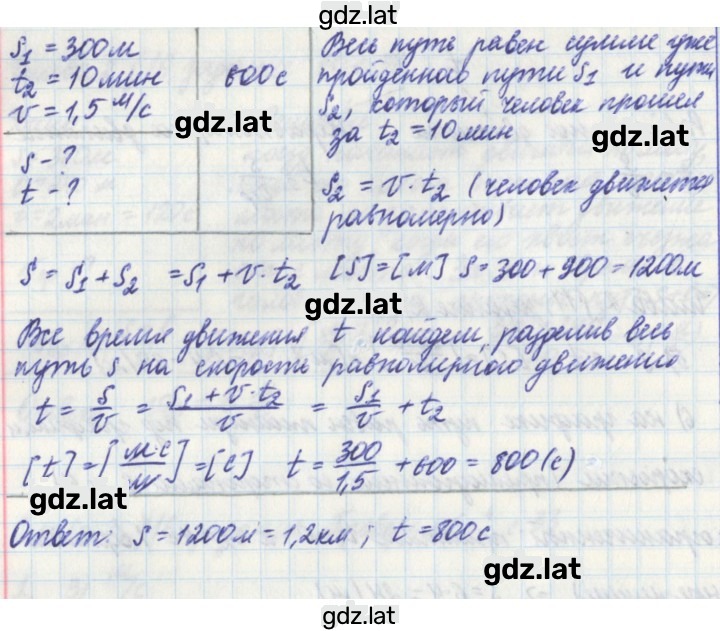 gdz.lat
S₁ = 300м
t₂ = 10 мин 600 с
v = 1,5 м/с
gdz.lat
S - ?
t - ?
Весь путь равен сумме уже
пройденного пути S₁ и пути
S₂, который человек прошел
за t₂ = 10 мин
gdz.lat
S₂ = v · t₂ (человек движется
равномерно)
S = S₁ + S₂ = S₁ + v · t₂ [S] = [м] S = 300 + 900 = 1200м
gdz.lat
Все время движения t найдем, разделив весь
путь S на скорость равномерного движения
t = S/v = (S₁ + v · t₂)/v = S₁/v + t₂
[t] = [м·с/м] = [с] t = 300/1,5 + 600 = 800 (с)
gdz.lat
Ответ: S = 1200м = 1,2км; t = 800с
gdz.lat
gdz.lat